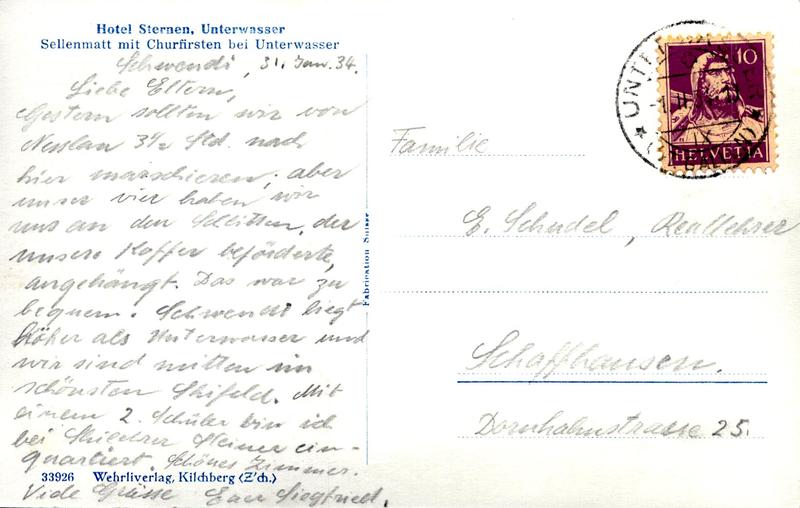 Hotel Sternen, Unterwasser
Sellenmatt mit Churfirsten bei Unterwasser
Schwendi, 31. Jan. 34.
Liebe Eltern,
Gestern sollten wir von
Nesslau 3½ Std. nach
hier marschieren; aber
unser vier haben wir
uns an den Schlitten, der
unsere Koffer beförderte,
angehängt. Das war zu
bequem. Schwendi liegt
höher als Unterwasser und
wir sind mitten im
schönsten Skifeld. Mit
einem 2. Schüler bin ich
bei Skilehrer Steiner ein-
quartiert. Schönes Zimmer.
Viele Grüsse Euer Siegfried.
33926 Wehrliverlag, Kilchberg (Z'ch.)
Fabrication Suisse
10
HELVETIA
Familie
E. Schudel, Reallehrer
Schaffhausen.
Dornhahnstrasse 25.